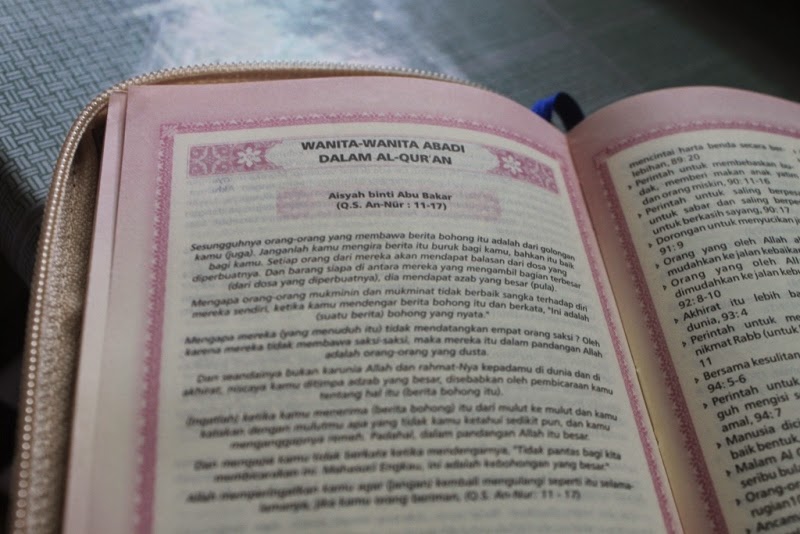 WANITA-WANITA ABADI
DALAM AL-QUR'AN
Aisyah binti Abu Bakar
(Q.S. An-Nūr : 11-17)
Sesungguhnya orang-orang yang membawa berita bohong itu adalah dari golongan
kamu (juga). Janganlah kamu mengira berita itu buruk bagi kamu, bahkan itu baik
bagi kamu. Setiap orang dari mereka akan mendapat balasan dari dosa yang
diperbuatnya. Dan barang siapa di antara mereka yang mengambil bagian terbesar
(dari dosa yang diperbuatnya), dia mendapat azab yang besar (pula).
Mengapa orang-orang mukminin dan mukminat tidak berbaik sangka terhadap diri
mereka sendiri, ketika kamu mendengar berita bohong itu dan berkata, "Ini adalah
(suatu berita) bohong yang nyata."
Mengapa mereka (yang menuduh itu) tidak mendatangkan empat orang saksi ? Oleh
karena mereka tidak membawa saksi-saksi, maka mereka itu dalam pandangan Allah
adalah orang-orang yang dusta.
Dan seandainya bukan karunia Allah dan rahmat-Nya kepadamu di dunia dan di
akhirat, niscaya kamu ditimpa adzab yang besar, disebabkan oleh pembicaraan kamu
tentang hal itu (berita bohong itu).
(Ingatlah) ketika kamu menerima (berita bohong) itu dari mulut ke mulut dan kamu
katakan dengan mulutmu apa yang tidak kamu ketahui sedikit pun, dan kamu
menganggapnya remeh. Padahal, dalam pandangan Allah itu besar.
Dan mengapa kamu tidak berkata ketika mendengarnya, "Tidak pantas bagi kita
membicarakan ini. Mahasuci Engkau, ini adalah kebohongan yang besar."
Allah memperingatkan kamu agar (jangan) kembali mengulangi seperti itu selama-
lamanya, jika kamu orang beriman, (Q.S. An-Nur: 11 - 17)
mencintai harta benda secara ber-
lebihan, 89: 20
› Perintah untuk membebaskan bu-
dak, memberi makan anak yatim
dan orang miskin, 90: 11-16
› Perintah untuk saling berpesan
untuk sabar dan saling berpesan
untuk berkasih sayang, 90: 17
› Dorongan untuk menyucikan
91: 9
› Orang yang oleh Allah
mudahkan ke jalan kebaikan
› Orang yang oleh Allah
dimudahkan ke jalan
92: 8-10
› Akhirat itu lebih
dunia, 93: 4
› Perintah untuk
nikmat Rabb (untuk
11
› Bersama kesulitan
94: 5-6
› Perintah untuk
guh mengisi
amal, 94: 7
› Manusia
baik bentuk
› Malam Al
seribu
› Orang-
rugian
› Ancam